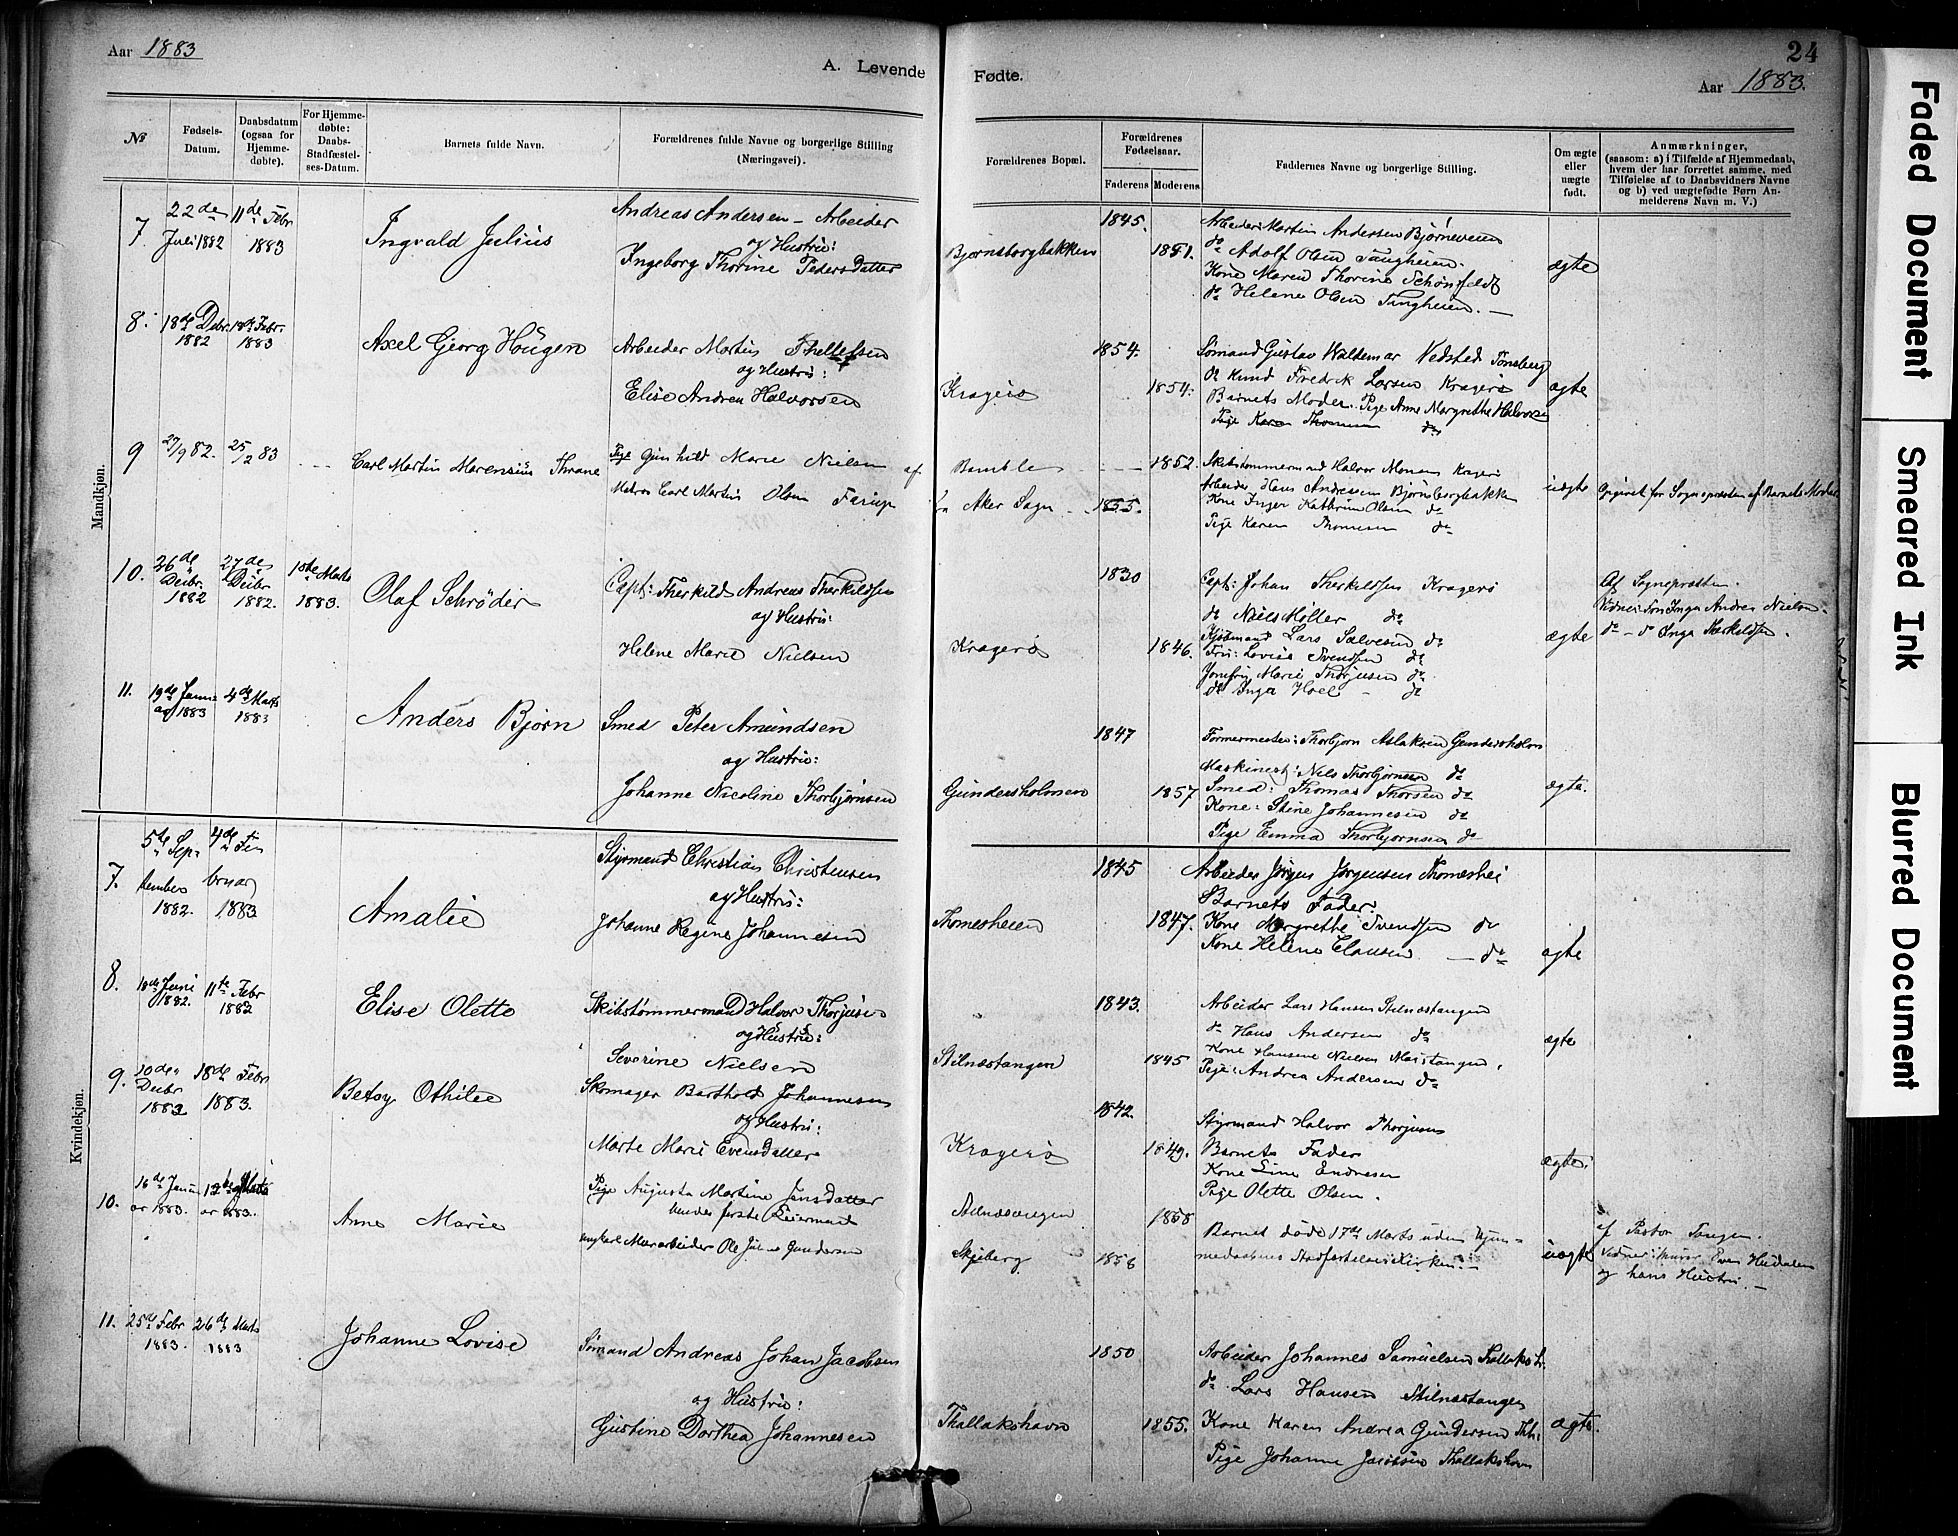 Aar 1883
A. Levende
Fødte.
24
Aar 1883.
№
Fødsels-Datum.
Daabsdatum (ogsaa for Hjemme-døbte).
For Hjemme-døbte: Daabs-Stadfæstel-ses-Datum.
Barnets fulde Navn.
Forældrenes fulde Navne og borgerlige Stilling
(Næringsvei).
Forældrenes Bopæl.
Forældrenes Fødselsaar.
Faderens
Moderens
Faddernes Navne og borgerlige Stilling.
Om ægte eller uægte født.
Anmærkninger,
(saasom: a) i Tilfælde af Hjemmedaab,
hvem der har forrettet samme, med
Tilføielse af to Daabsvidners Navne
og b) ved uægtefødte Børn An-
melderens Navn m. V.)
Mandkjøn.
7.
22de Juli 1882
11de Febr 1883
Ingvald Julius
Andreas Andersen - Arbeider
og Hustru:
Ingeborg Thorine Pedersdatter
Bjørnsborgbakken
1845.
1851.
Arbeider Martin Andersen Bjørneveien
do Adolf Olsen
Kone Maren Thorine Schønfeldt
do Helene Olsen
ægte
8.
18de Debr. 1882
18de Febr. 1883
Axel Georg Haugen
Arbeider Martin Thellefsen
og Hustru:
Elise Andrea Halvorsen
Kragerø
1854.
1854.
Sømand Gustav Waldemar Vedsted Tønsberg
do Knud Fredrik Larsen Kragerø
Barnets Moder. Pige Anne Margrethe Halvorsen
Pige Karen Thomesen do
ægte
9
27/9 82.
25/2 83
Carl Martin Marensius Thrane
Pige Gunhild Marie Nielsen af
Matros Carl Martin Olsen
Bamble
fra Aker Sogn
1852.
1855.
Skibstømmermand Halvor Kragerø
Arbeider Hans Andersen Bjørnsborgbakken
Kone Inger Kathrine Olsen do
Pige Karen Thomesen do
uægte
Opgivet for Sognepræsten af Barnets Moder
10.
26de Decbr. 1882
27de Decbr 1882.
1ste Marts 1883.
Olaf Schrøder
Capt: Therkild Andreas Therkildsen
og Hustru:
Helene Marie Nielsen
Kragerø
1830
1846.
Capt: Johan Therkildsen Kragerø
do Niels Møller do
Kjøbmand Lars Salvesen do
Fru: Lovise Svendsen do
Jomfru Marie Thorjusen do
do Inga Hoel - do
ægte
Af Sognepræsten.
Vidner: Frn Inga Andrea Nielsen.
do - do Inga Therkildsen.
11.
19de Janu-ar 1883
4de Marts 1883
Anders Bjørn
Smed Peter Amundsen
og Hustru:
Johanne Nicoline Thorbjørnsen
Gundersholmen
1847
1857
Formermester: Thorbjørn Aslaksen Gundersholmen
Maskinist: Nils Thorbjørnsen do
Smed: Thomas Thorsen do
Kone: Stine Johannesen do
Pige Emma Thorbjørnsen do
ægte.
Kvindekjøn.
7.
5te Sep-tember 1882.
4de Fe-bruar 1883
Amalie
Styrmand Christian Christensen
og Hustru:
Johanne Regine Johannesen
Thomesheien
1845
1847.
Arbeider Jørgen Jørgensen Thomeshei
Barnets Fader
Kone Margrethe Svendsen do
Kone Helene Clausen - do
ægte
8.
10de Juni 1882.
11te Febr 1882
Elise Olette
Skibstømmermand Halvor Thorjusen
og Hustru:
Severine Nielsen
Stilnæstangen
1843.
1845
Arbeider Lars Hansen Stilnæstangen
do Hans Andersen do
Kone Hansene Nielsen
Pige: Andrea Andersen do
ægte
9.
10de Decbr 1883
18de Febr 1883.
Betsy Othilie
Skomager Barthold Johannesen
og Hustru:
Marte Marie Evensdatter
Kragerø
1842.
1849.
Styrmand Halvor Thorjusen
Barnets Fader
Kone Line Endresen
Pige Olette Olsen.
ægte.
10.
16de Janu-ar 1883.
12te 1883.
Anne Marie
Pige Augusta Martine Jensdatter
hendes første Leiermaal
Ungkarl Murarbeider Ole Gundersen
Stilnæstangen
Skjeberg
1858
1856
Barnet døde 17de Marts uden Hjem-
medaabens Stadfæstelse i Kirken. -
uægte
af Pastor Tangen.
Vidner: Murer Even
og hans Hustru. -
11.
25de Febr 1883.
26de Marts 1883
Johanne Lovise
Sømand Andreas Johan Jacobsen
og Hustru:
Gustine Dorthea Johannesen
Thallakshavn
1850
1855.
Arbeider Johannes Samuelsen Thallaksh.
do Lars Hansen Stilnæstangen
Kone Karen Andrea Gundersen Thh.
Pige Johanne Jacobsen Thallakshavn
ægte.
Faded Document
Smeared Ink
Blurred Document